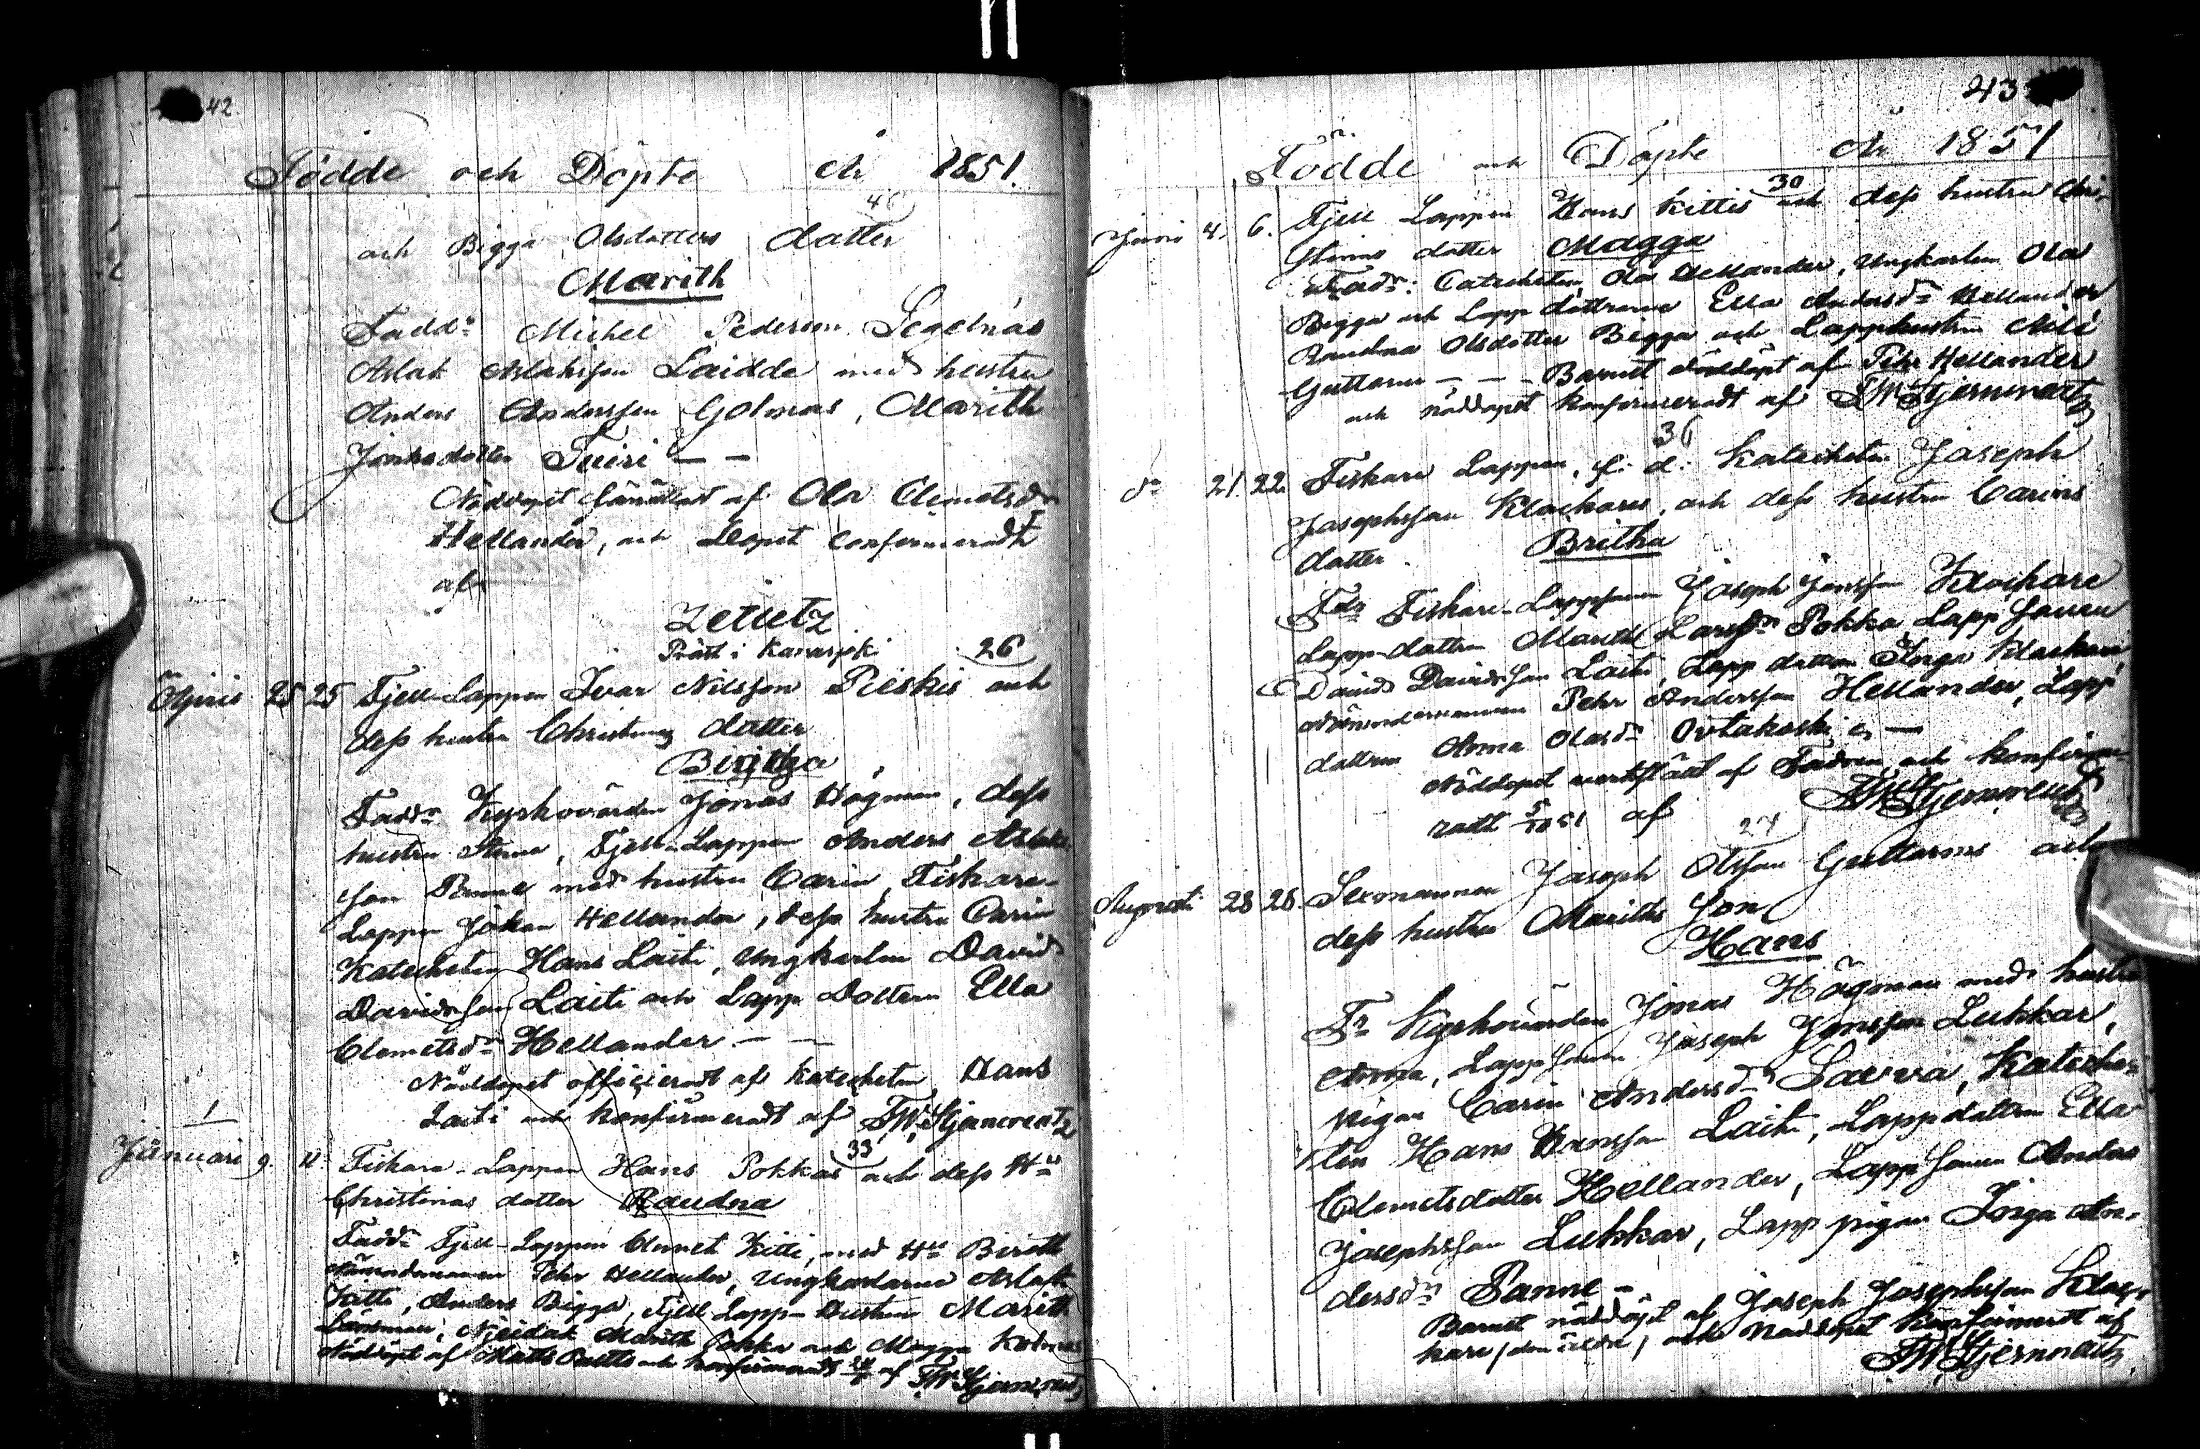 42
Födde och Döpte År 1851.
40
och Bigga Olsdotters dotter
Marith
Fadd: Michel Pederson Segelnäs
Aslak Aslaksson Laidda med hustru
Anders Andersson Golmas, Marith
Jonsdotter
Nöddopet af Ola Clemetsd:n
Hellander, och Dopet confirmeradt
af
Zetlitz
Präst i Karasjok
26
Aprill 25 25 Fjell-Lappen Ivar Nilsson Pieskis och
dess hustru Christinas dotter
Biritha
Fadd:r Kyrkovärden Jonas Högman, dess
hustru Anna, Fjell-Lappen Anders Aslaks-
son Panne med hustru Carin, Fiskare-
Lappen Johan Hellander, dess hustru Carin
Katecheten Hans Laiti, Ungkarlen David
Davidsson Laiti och Lapp Dottern Ella
Clemetsd:r Hellander — —
Nöddopet officieradt af Katecheten Hans
Laiti och konfirmeradt af F.W. Stjerncreutz
1
Januari 9. 11. Fiskare-Lappen Hans Pokkas och dess H:u
33
Christinas dotter Raudna
Fadd:r Fjell-Lappen Clemet Kitti, med H:u Berith
Nämndemannen Pehr Hellander, Ungkarlarne Aslak
Anders Bigga, Fjell Lapp-Hustrun Marith
Marith Pokka och Magga
Nöddöpt af Matts och konfirmeradt af F.W. Stjerncreutz
43
Födde och Döpte År 1851
30
Junii 4. 6. Fjell Lappen Hans Kittis och dess hustru Chri-
stinas dotter Magga
Fadd:r: Catecheten Ola Hellander, Ungkarlen Ola
Bigga och Lapp döttrarne Ella Andersd:r Hellander
Raudna Olsdotter Bigga och Lapphustrun
Guttorm — — Barnet nöddöpt af Pehr Hellander
och nöddopet konfirmeradt af F.W. Stjerncreutz
36
d:o 21. 22. Fiskare Lappen, f. d. Katecheten Joseph
Josephsson Klockares, och dess hustru Carins
dotter. Britha
Fdr Fiskare-Lappsonen Joseph Jonsson Klockare
Lapp-dottern Marith Larsd:r Pokka Lapp Sonen
David Davidsson Laiti, Lapp dottern Inga Klockare,
Nämndemannen Pehr Andersson Hellander, Lapp
dottern Anna Olasd:r Ovtakoski —
Nöddopet verkställt af Fadren och konfirme-
radt af F.W. Stjerncreutz
27
Augusti 28 28. Sexmannen Joseph Olsson Guttorms och
dess hustru Mariths Son
Hans
Fr Kyrkovärden Jonas Högman med hustru
Anna, Lapp Sonen Joseph Jonsson Lukkar,
pigan Carin Andersd:r Savva, Kateche-
ten Hans Hansson Laiti, Lappdottern Ella
Clemetsdotter Hellander, Lapp Sonen Anders
Josephsson Lukkar, Lapp pigan Inga An-
dersd:r Panne —
Barnet nöddöpt af Joseph Josephsson Kloc-
kare, den äldre, och Nöddopet konfirmeradt af
F.W. Stjerncreutz